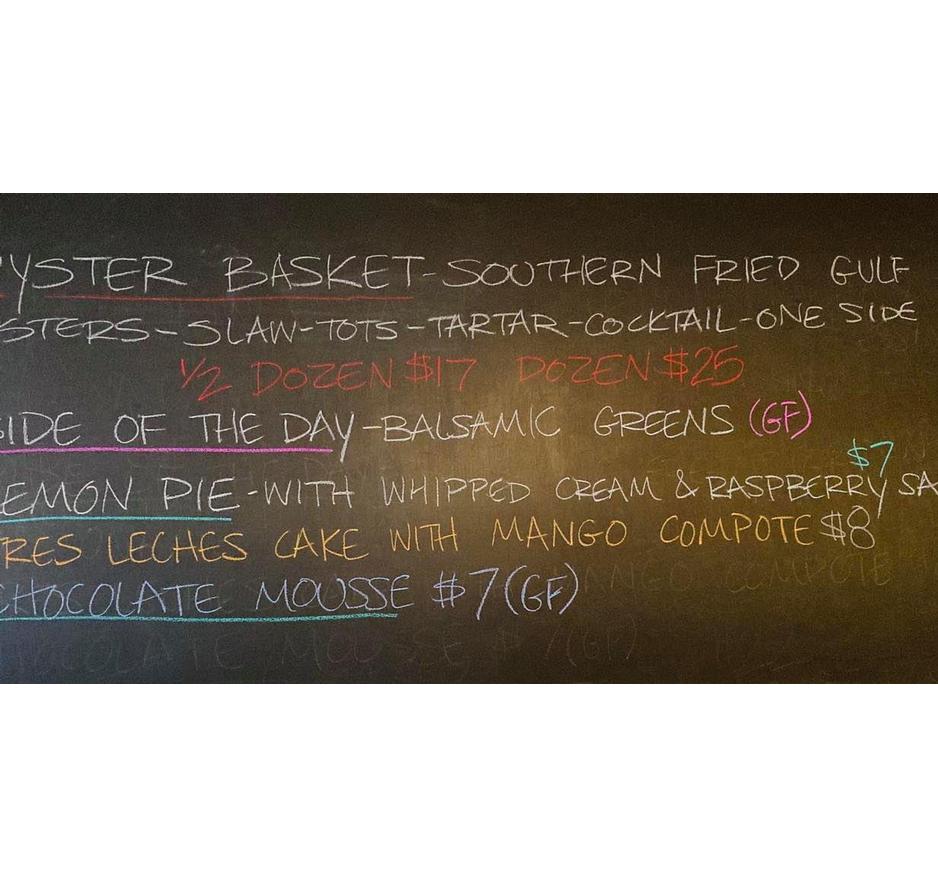 YSTER BASKET-SOUTHERN FRIED GULF
STERS-SLAW-TOTS-TARTAR-COCKTAIL-ONE SIDE
1/2 DOZEN $17 DOZEN $25
IDE OF THE DAY-BALSAMIC GREENS (GF)
$7
EMON PIE-WITH WHIPPED CREAM & RASPBERRY SA
RES LECHES CAKE WITH MANGO COMPOTE $8
CHOCOLATE MOUSSE $7 (GF)